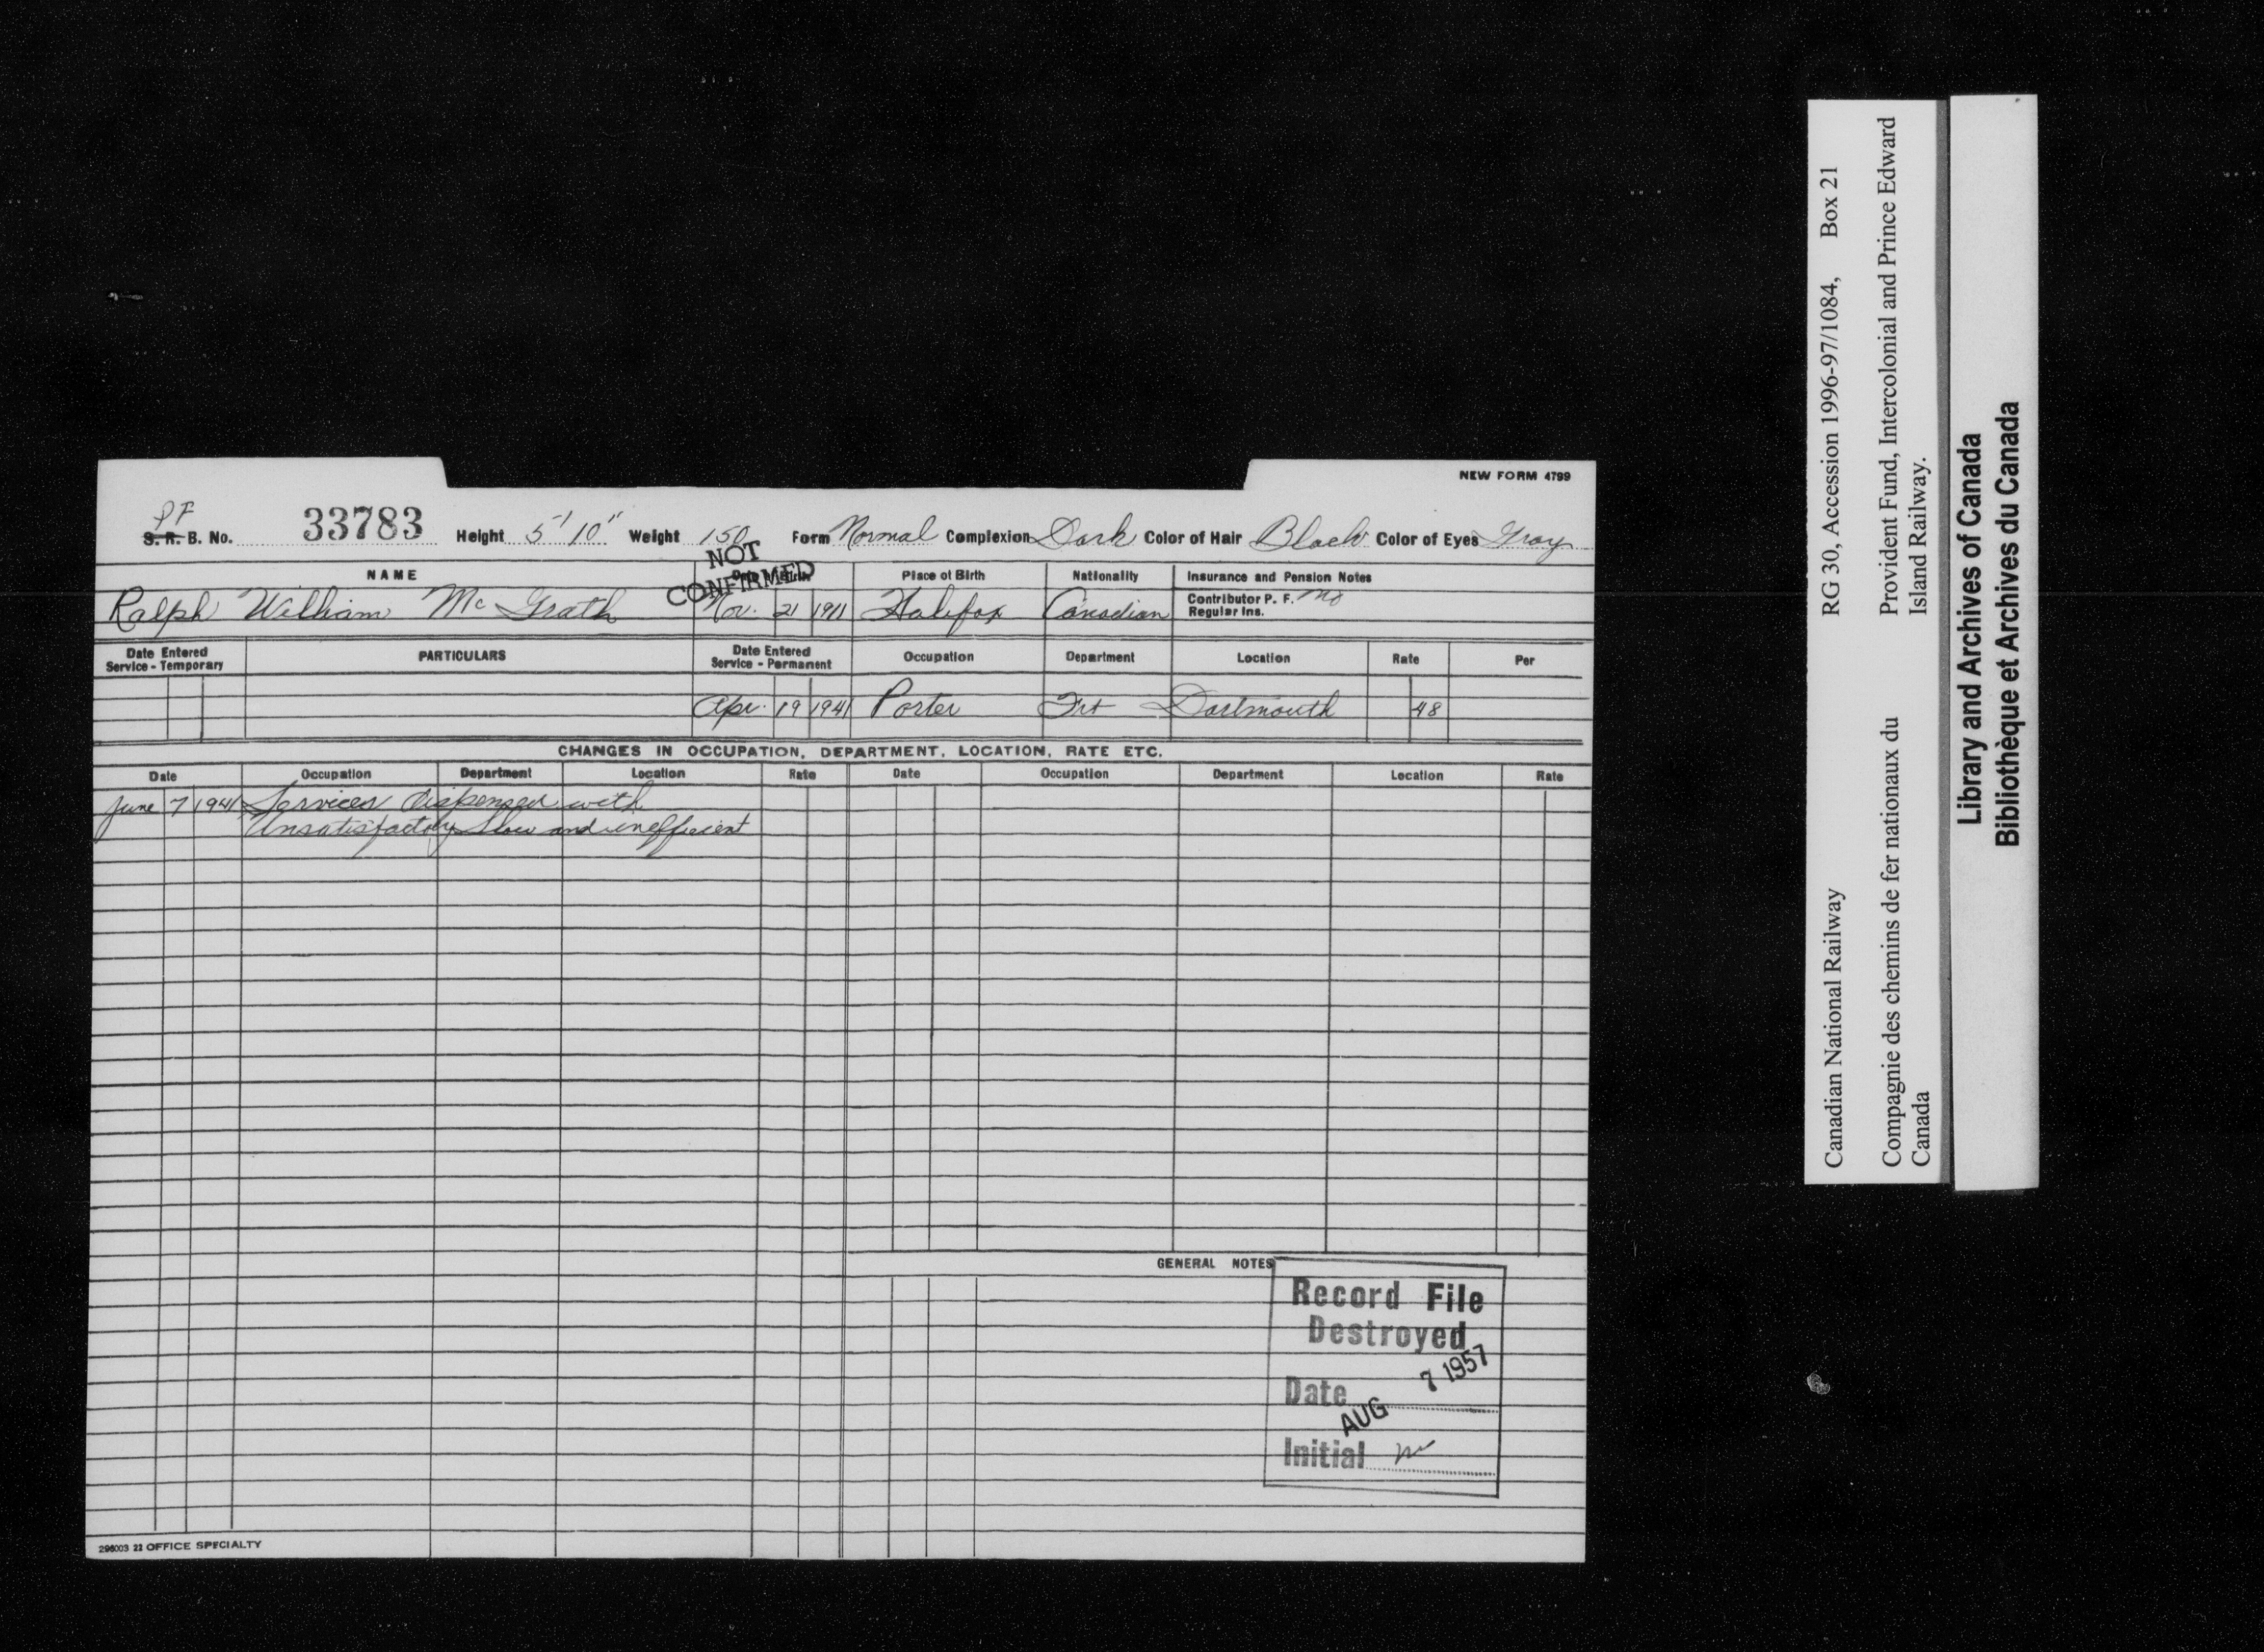 NEW FORM 4799
PF
S. R. B. No. 33783 Height 5' 10" Weight 150 Form Normal Complexion Dark Color of Hair Black Color of Eyes Gray
NOT
CONFIRMED
NAME Date of Birth Place of Birth Nationality Insurance and Pension Notes
Ralph William McGrath Nov. 21 1911 Halifax Canadian Contributor P. F. No
Regular Ins.
Date Entered Service - Temporary PARTICULARS Date Entered Service - Permanent Occupation Department Location Rate Per
Apr. 19 1941 Porter Frt Dartmouth 48
CHANGES IN OCCUPATION, DEPARTMENT, LOCATION, RATE ETC.
Date Occupation Department Location Rate Date Occupation Department Location Rate
June 7 1941 Services dispensed with
Unsatisfactory Slow and inefficient
GENERAL NOTES
Record File
Destroyed
Date AUG 7 1957
Initial
296003 22 OFFICE SPECIALTY
Canadian National Railway RG 30, Accession 1996-97/1084, Box 21
Compagnie des chemins de fer nationaux du Provident Fund, Intercolonial and Prince Edward
Canada Island Railway.
Library and Archives of Canada
Bibliothèque et Archives du Canada